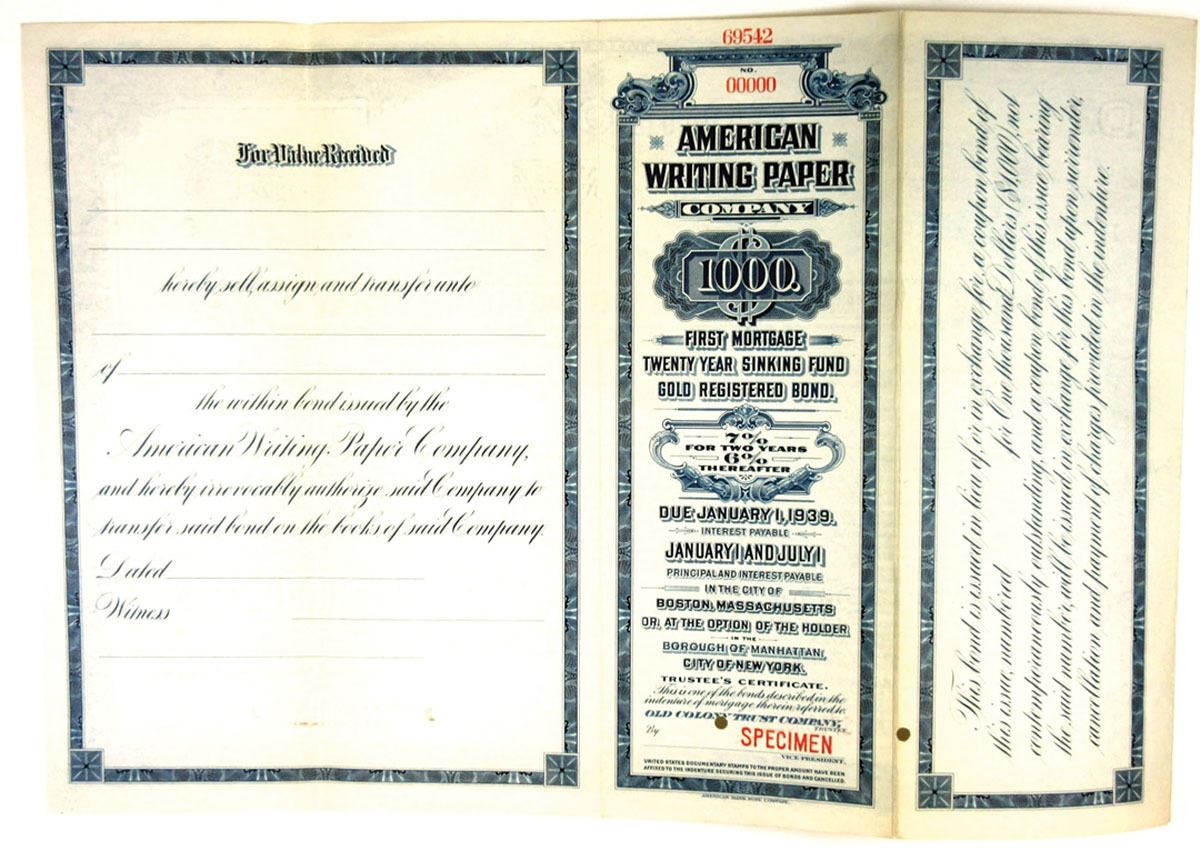 For Value Received
hereby sell, assign, and transfer unto
of
the within bond issued by the
American Writing Paper Company,
and hereby irrevocably authorize said Company to
transfer said bond on the books of said Company.
Dated
Witness
69542
NO.
00000
AMERICAN
WRITING PAPER
COMPANY
$1000.
FIRST MORTGAGE
TWENTY YEAR SINKING FUND
GOLD REGISTERED BOND.
7%
FOR TWO YEARS
6%
THEREAFTER
DUE JANUARY 1, 1939.
INTEREST PAYABLE
JANUARY 1 AND JULY 1
PRINCIPAL AND INTEREST PAYABLE
IN THE CITY OF
BOSTON, MASSACHUSETTS
OR, AT THE OPTION OF THE HOLDER
IN THE
BOROUGH OF MANHATTAN,
CITY OF NEW YORK.
TRUSTEE'S CERTIFICATE.
This is one of the bonds described in the
indenture of mortgage therein referred to.
OLD COLONY TRUST COMPANY,
TRUSTEE
By
SPECIMEN
VICE-PRESIDENT.
UNITED STATES DOCUMENTARY STAMPS TO THE PROPER AMOUNT HAVE BEEN
AFFIXED TO THE INDENTURE SECURING THIS ISSUE OF BONDS AND CANCELLED.
AMERICAN BANK NOTE COMPANY.
This bond is issued in lieu of or in exchange for a coupon bond of
this issue, numbered for One thousand Dollars ($1,000), not
contemporaneously outstanding, and coupon bond of this issue, bearing
the said number, will be issued in exchange for this bond upon surrender,
cancellation and payment of charges provided in the indenture.